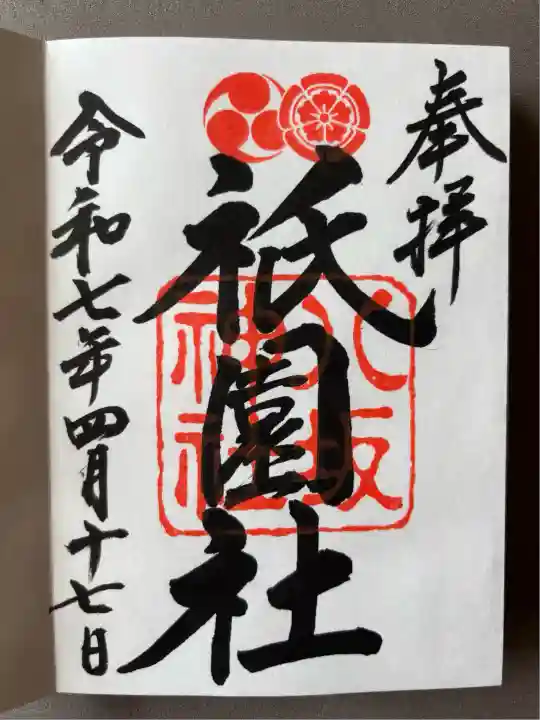 奉拝
祇園社
八坂神社
令和七年四月十七日